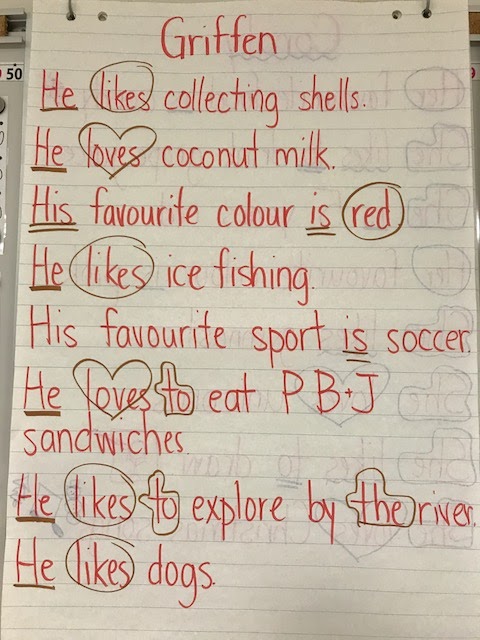 Griffen
He likes collecting shells.
He loves coconut milk.
His favourite colour is red
He likes ice fishing.
His favourite sport is soccer.
He loves to eat PB+J
sandwiches.
He likes to explore by the river.
He likes dogs.
50